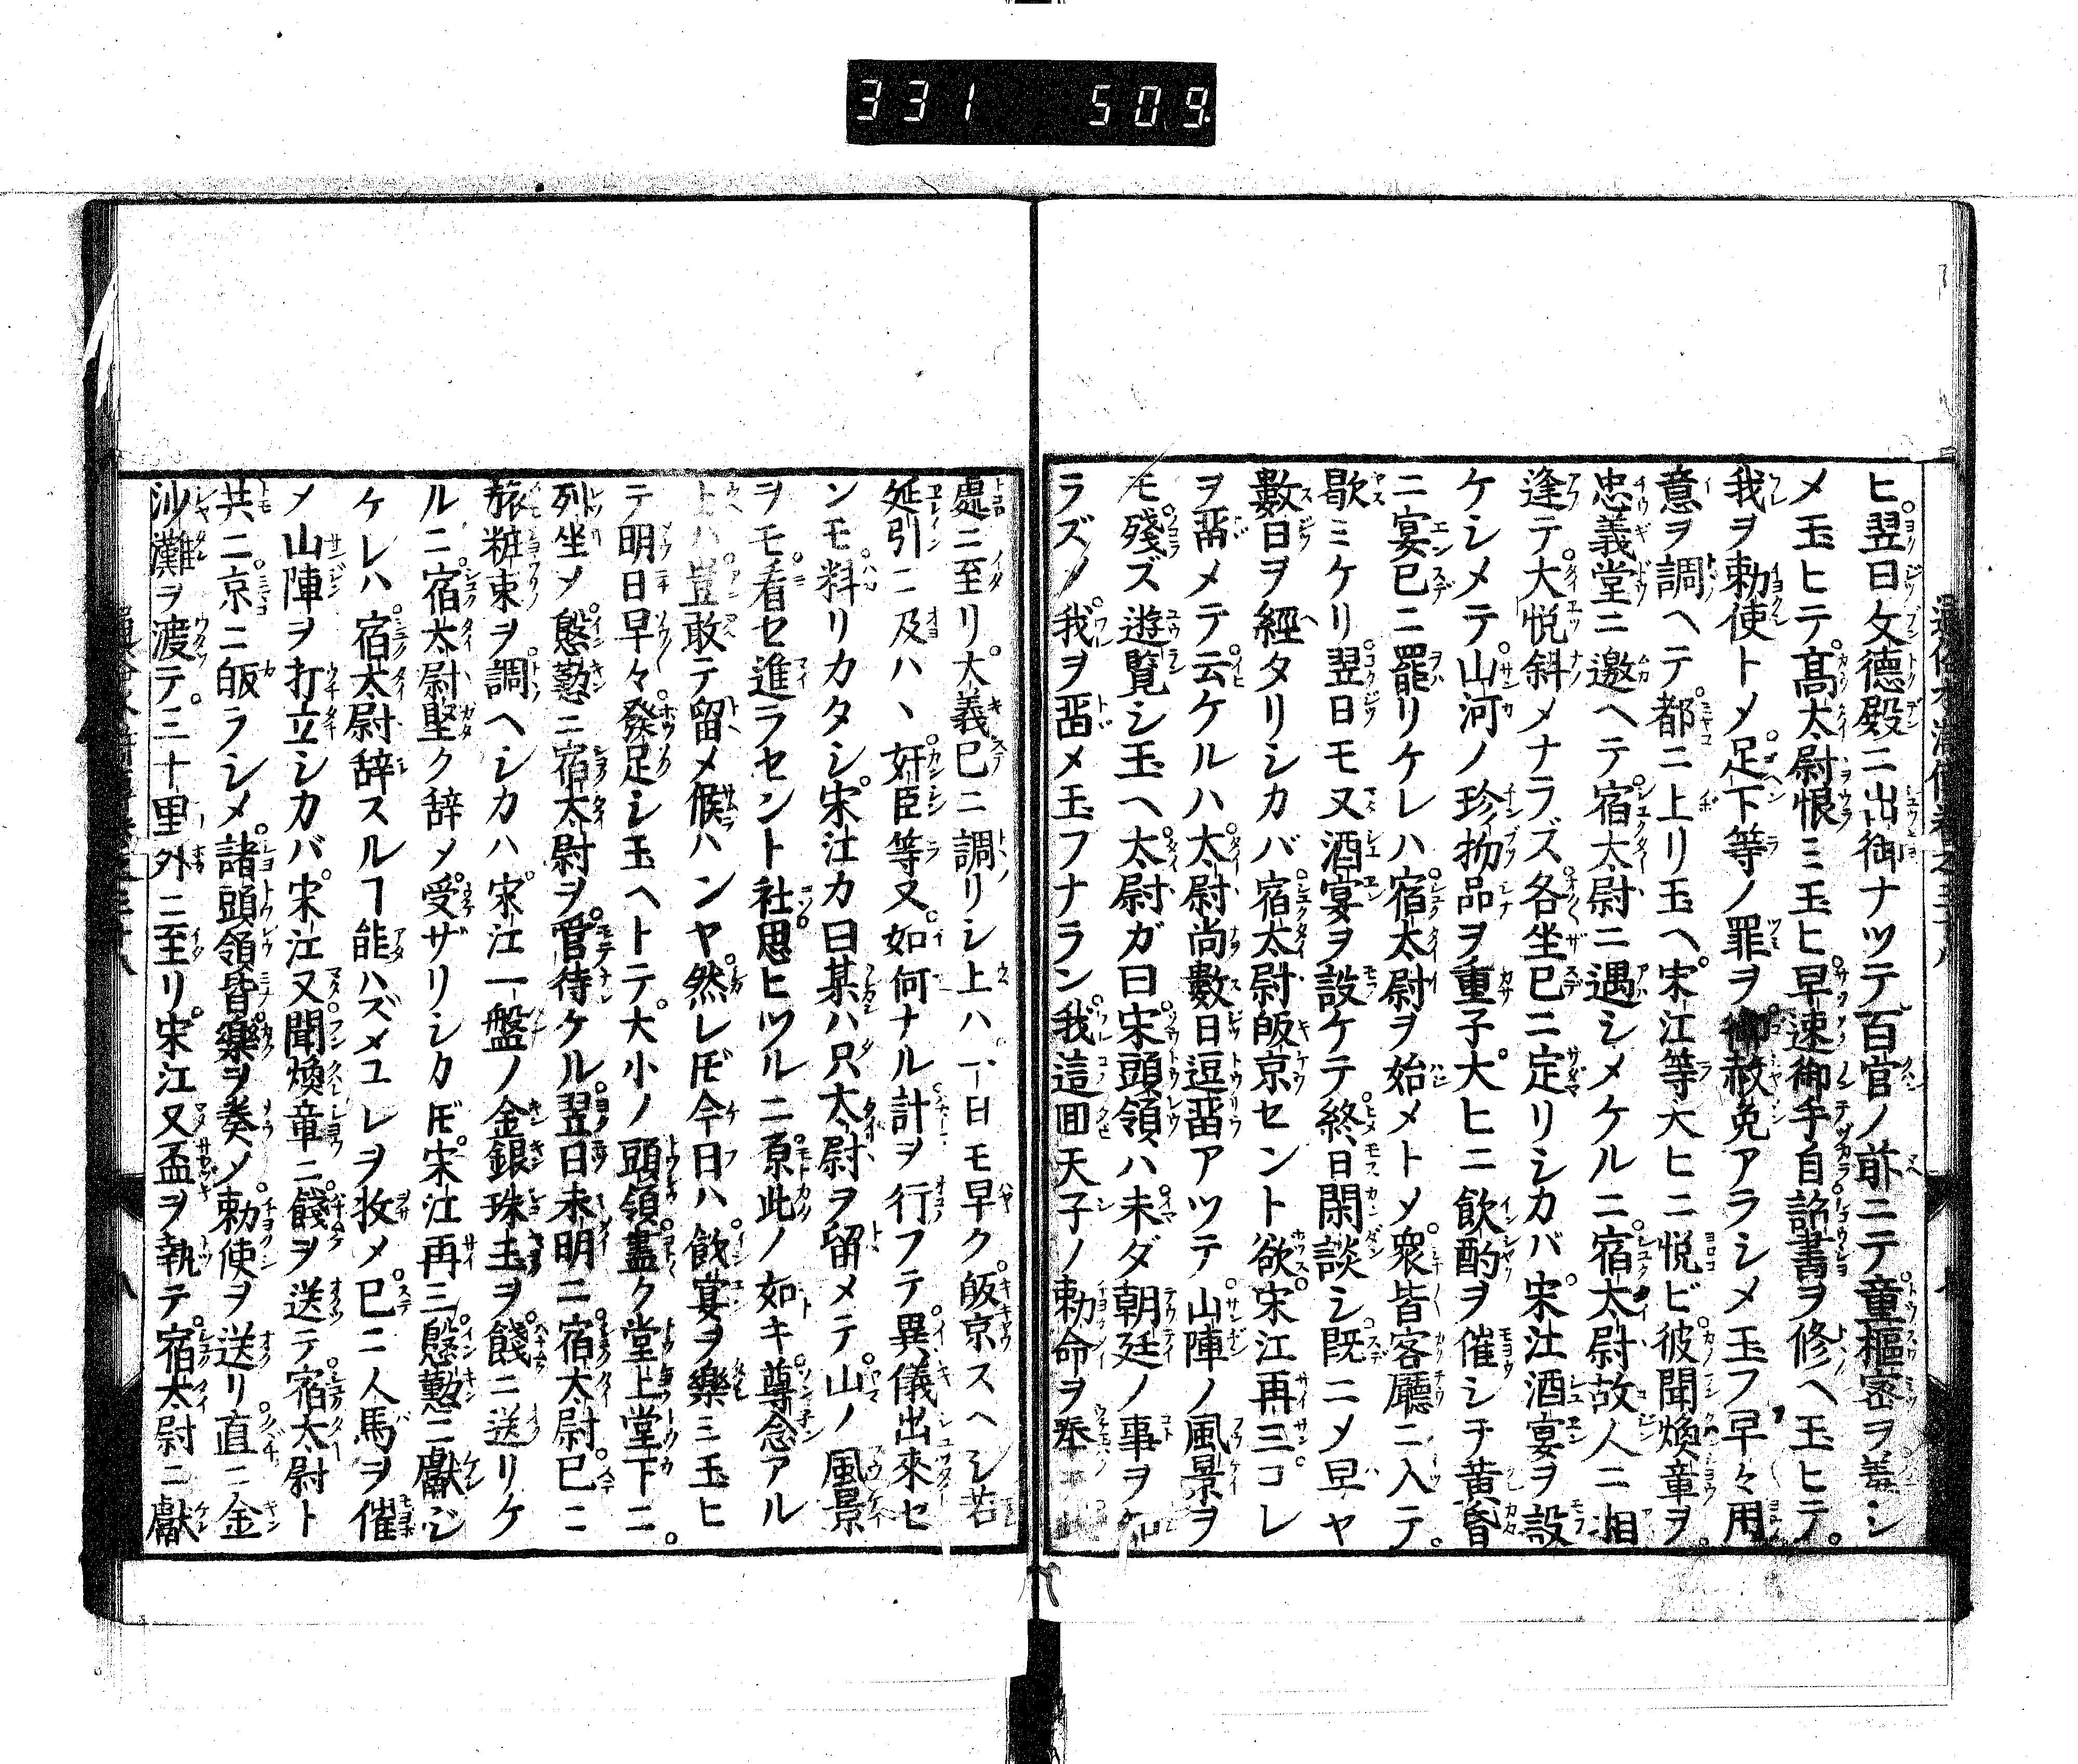 331 509
ヒ翌日文德殿ニ出御ナツテ百官ノ前ニテ童樞密ヲ羞シ
メ玉ヒテ高太尉恨ミ玉ヒ早速御手自詔書ヲ修ヘ玉ヒテ
我ヲ勅使トメ足下等ノ罪ヲ御赦免アラシメ玉フ早々用
意ヲ調ヘテ都ニ上リ玉ヘ宋江等大ヒニ悦ビ彼聞煥章ヲ
忠義堂ニ邀ヘテ宿太尉ニ遇シメケルニ宿太尉故人ニ相
逢テ大悦斜メナラズ各坐已ニ定リシカバ宋江酒宴ヲ設
ケシメテ山河ノ珍物品ヲ重子大ヒニ飲酌ヲ催シヲ黄昏
ニ宴已ニ罷リケレハ宿太尉ヲ始メトメ衆皆客廳ニ入テ
歇ミケリ翌日モ又酒宴ヲ設ケテ終日閑談シ既ニメ早ヤ
數日ヲ經タリシカバ宿太尉皈京セント欲宋江再三コレ
ヲ畱メテ云ケルハ太尉尚數日逗畱アツテ山陣ノ風景ヲ
モ殘ズ遊覽シ玉ヘ太尉ガ曰宋頭領ハ未ダ朝廷ノ事ヲ知
ラズノ我ヲ畱メ玉フナラン我這回天子ノ勅命ヲ奉
處ニ至リ大義已ニ調リシ上ハ一日モ早ク皈京スヘシ若
延引ニ及ハヽ奸臣等又如何ナル計ヲ行フテ異儀出來セ
ンモ料リカタシ宋江カ曰某ハ只太尉ヲ留メテ山ノ風景
ヲモ看セ進ラセント社思ヒツルニ原此ノ如キ尊念アル
上ハ豈敢テ留メ候ハンヤ然レ𪜈今日ハ飲宴ヲ樂ミ玉ヒ
テ明日早々發足シ玉ヘトテ大小ノ頭領盡ク堂上堂下ニ
列坐メ慇懃ニ宿太尉ヲ管待ケル翌日未明ニ宿太尉已ニ
旅粧束ヲ調ヘシカハ宋江一盤ノ金銀珠玉ヲ餞ニ送リケ
ルニ宿太尉堅ク辞メ受ザリシカ𪜈宋江再三慇懃ニ獻ジ
ケレハ宿太尉辞スルヿ能ハズメコレヲ收メ已ニ人馬ヲ催
メ山陣ヲ打立シカバ宋江又聞煥章ニ餞ヲ送テ宿太尉ト
共ニ京ニ皈ラシメ諸頭領皆樂ヲ奏メ勅使ヲ送リ直ニ金
沙灘ヲ渡テ三十里外ニ至リ宋江又盃ヲ執テ宿太尉ニ獻